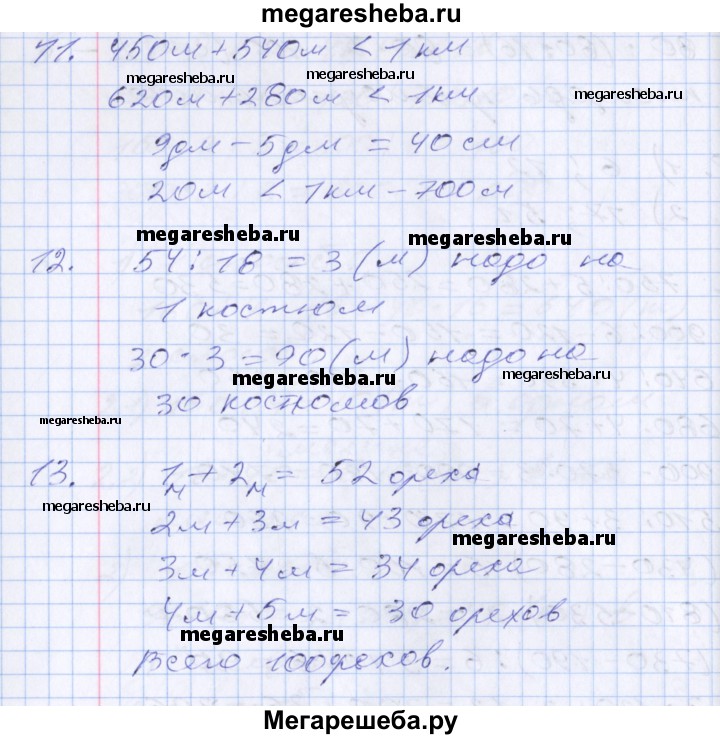 megaresheba.ru
11. 450м + 540м < 1 км
megaresheba.ru megaresheba.ru
620м + 280м < 1км megaresheba.ru
9дм - 5дм = 40см
20м < 1км - 700м
megaresheba.ru megaresheba.ru
12. 54 : 18 = 3 (м) надо на
1 костюм
30 · 3 = 90 (м) надо на
megaresheba.ru megaresheba.ru
30 костюмов
megaresheba.ru
13. 1м + 2м = 52 ореха
megaresheba.ru
2м + 3м = 43 ореха
megaresheba.ru
3м + 4м = 34 ореха
megaresheba.ru
4м + 5м = 30 орехов
megaresheba.ru
Всего 100 орехов.
Мегарешеба.ру